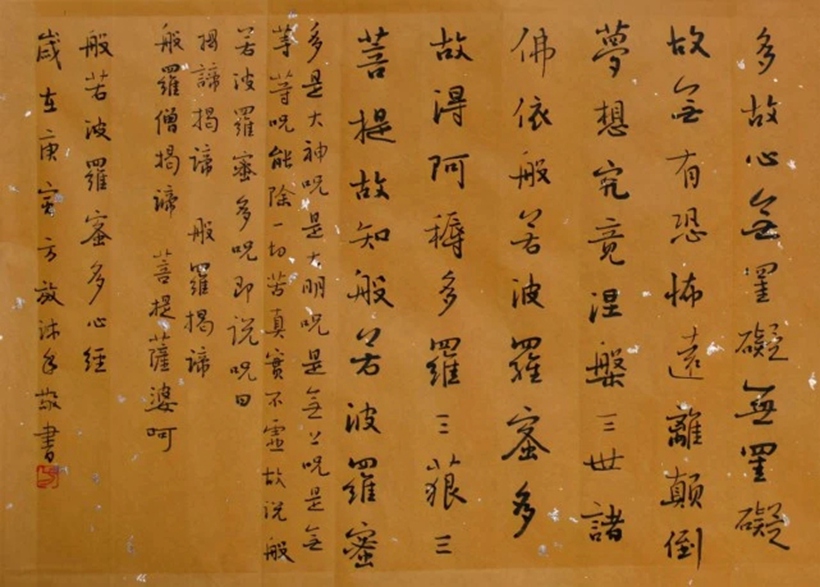 多故心無罣礙無罣礙
故無有恐怖遠離顛倒
夢想究竟涅槃三世諸
佛依般若波羅蜜多
故得阿耨多羅三藐三
菩提故知般若波羅蜜
多是大神呪是大明呪是無上呪是無
等等呪能除一切苦真實不虛故說般
若波羅蜜多呪即說呪曰
揭諦揭諦 般羅揭諦
般羅僧揭諦 菩提薩婆呵
般若波羅蜜多心經
歲在庚寅方放沐手敬書